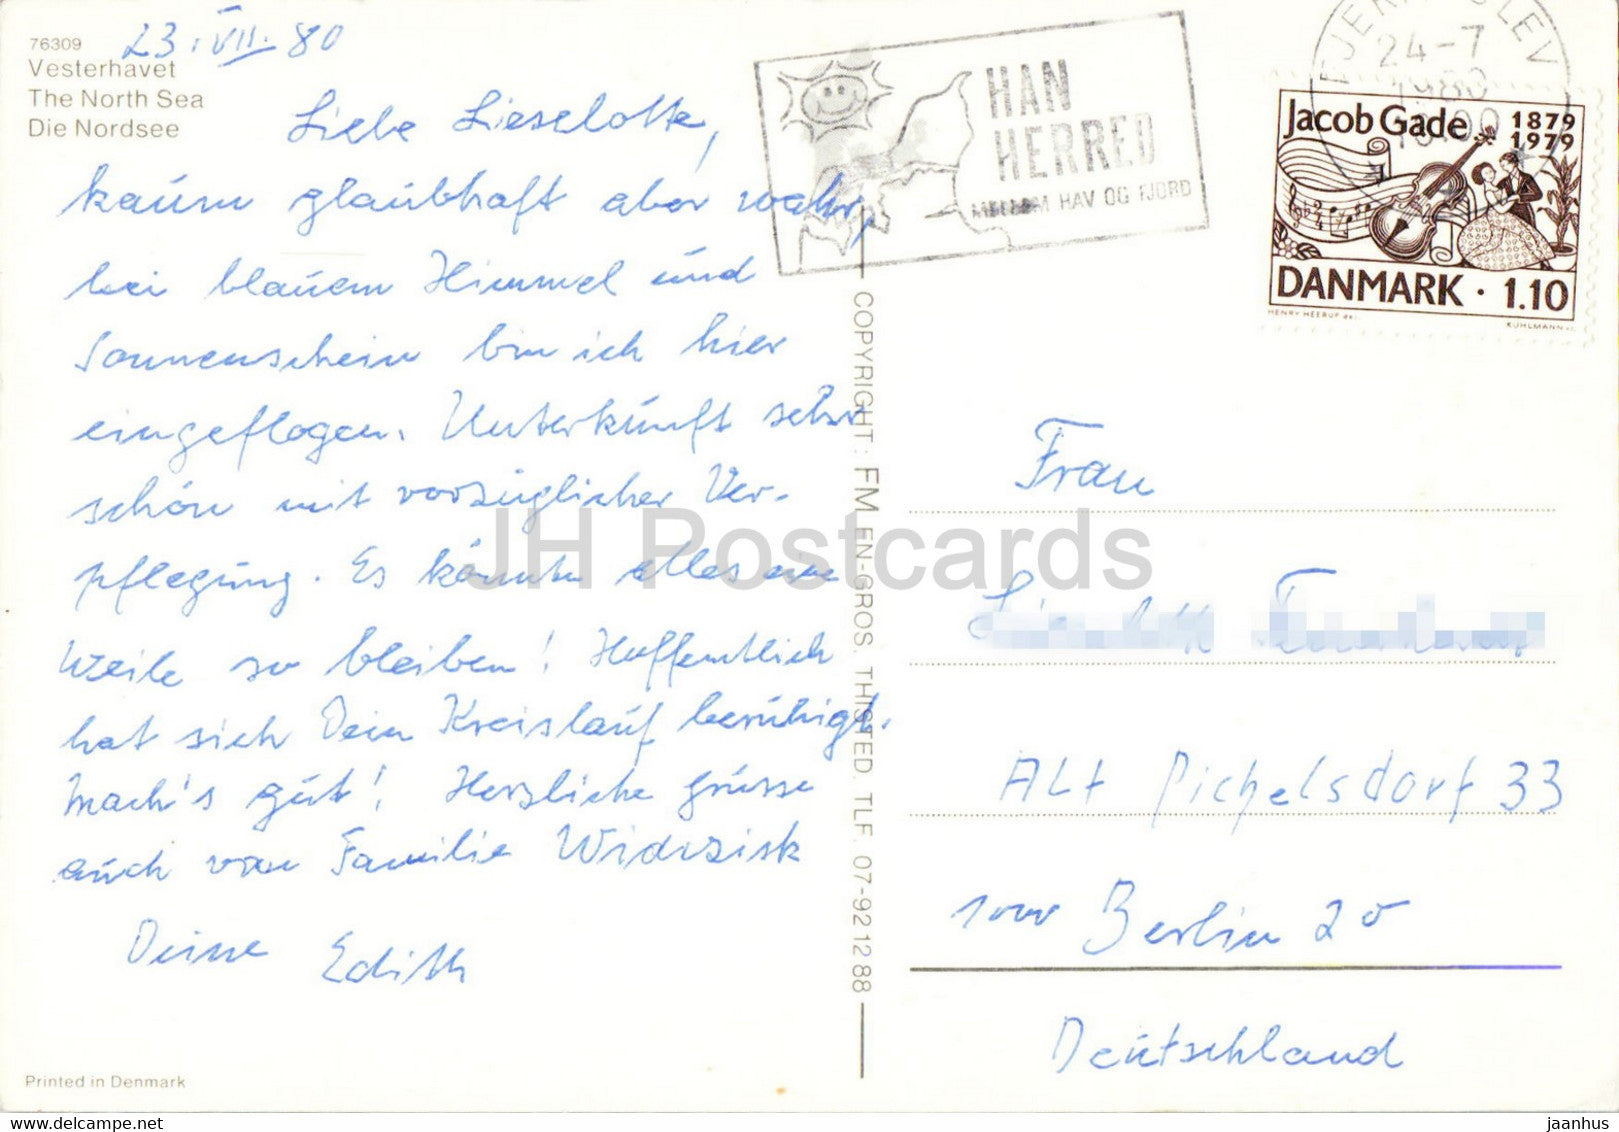 76309
Vesterhavet
The North Sea
Die Nordsee
23.VII.80
Liebe Lieselotte,
kaum glaubhaft aber wahr,
bei blauem Himmel und
Sonnenschein bin ich hier
eingeflogen. Unterkunft sehr
schön mit vorzüglicher Ver-
pflegung. Es könnte alles eine
Weile so bleiben! Hoffentlich
hat sich Dein Kreislauf beruhigt.
Mach's gut! Herzliche Grüsse
auch von Familie
Deine Edith
Printed in Denmark
HAN
HERRED
MELLEM HAV OG FJORD
24-7
1980
Jacob Gade 1879
1979
DANMARK · 1.10
HENRY HEERUP del.
KUHLMANN sc.
COPYRIGHT: FM EN-GROS. THISTED. TLF. 07-92 12 88
JH Postcards
Frau
Alt Pichelsdorf 33
1000 Berlin 20
Deutschland
jaanhus